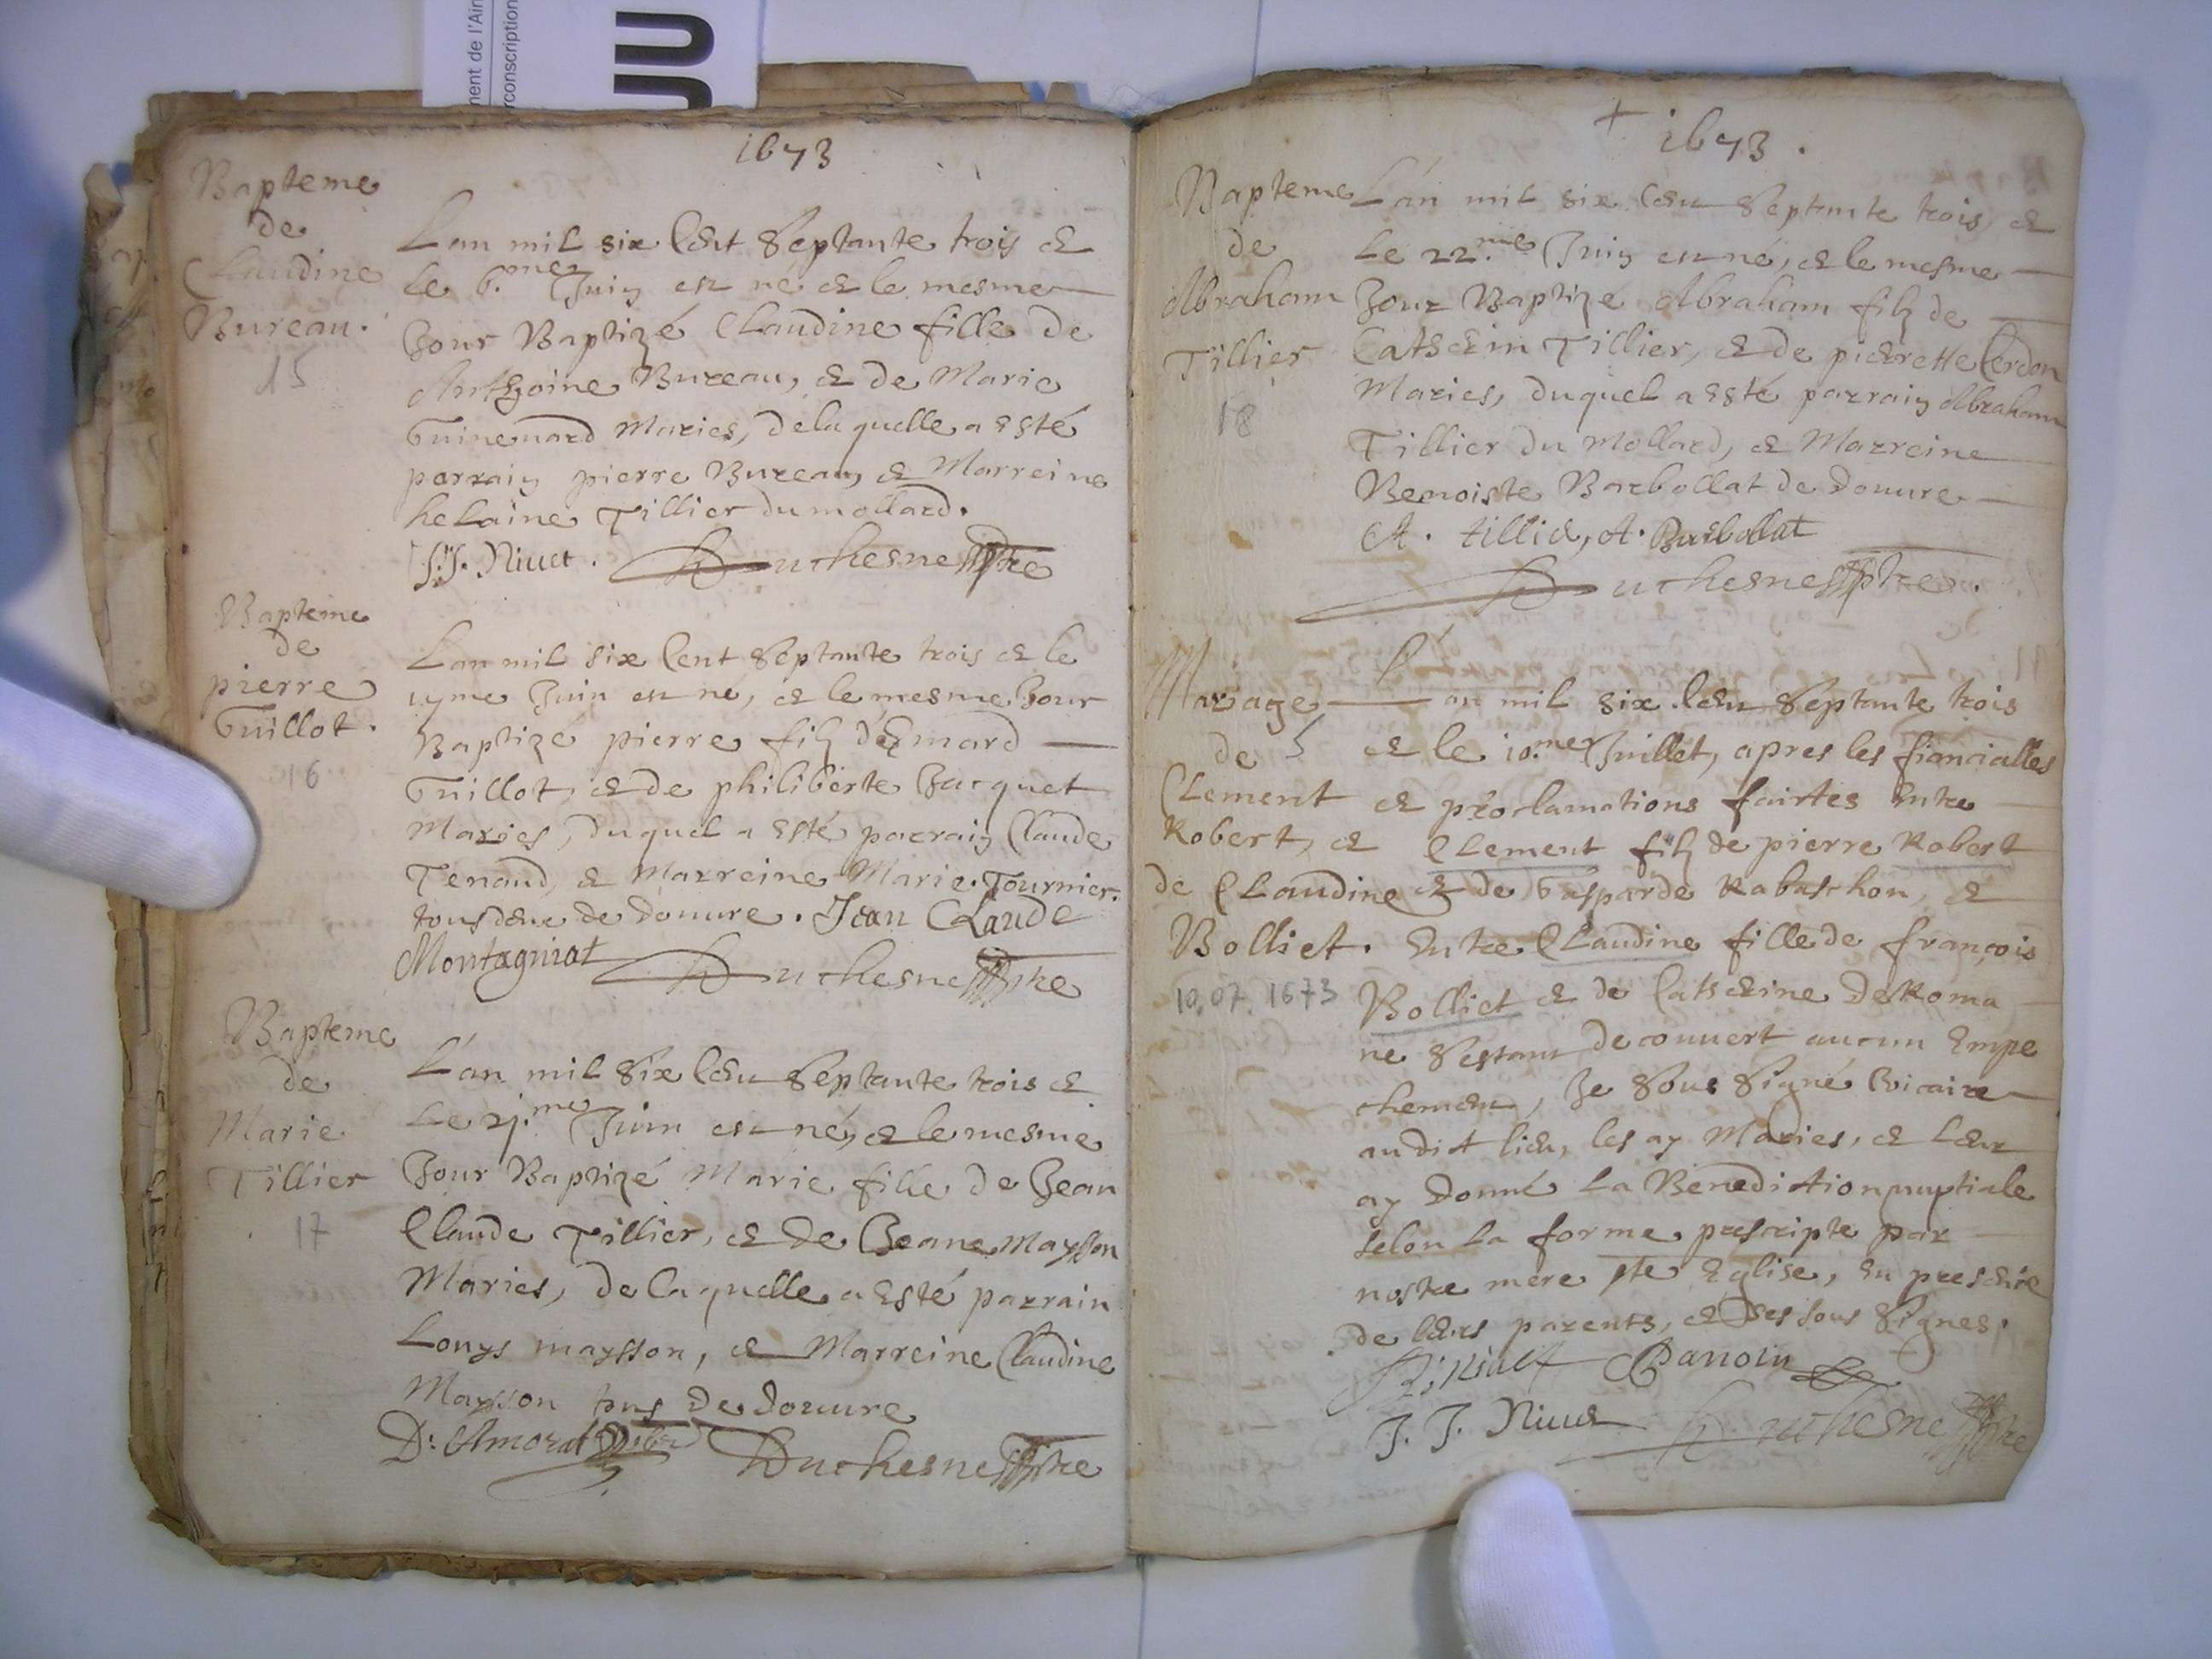 ment de l'Ain
rconscription
1673
Bapteme
de
Claudine
Bureau.
15
Lan mil six Cent Septante trois et
le 6.me Juin est né et le mesme
Jour Baptizé Claudine fille de
Anthoine Bureau, et de Marie
Guinemard Maries, de laquelle a Esté
parrain pierre Bureau, et Marreine
helaine Tillier du mollard.
J.J. Niuet. Duchesne Ptre
Bapteme
de
pierre
Guillot.
16
Lan mil six Cent Septante trois et le
Juin est né, et le mesme Jour
Baptizé pierre filz d'Emard
Guillot, et de philiberte Jacquet
Maries, duquel a Esté parrain Claude
Tenaud, et Marreine Marie Tournier.
tous deux de douure. Jean Claude
Montagniat Duchesne Ptre
Bapteme
de
Marie
Tillier
17
L'an mil Six Cent Septante trois et
Le 21.me Juin est né, et le mesme
Jour Baptizé Marie fille de Jean
Claude Tillier, et de Jeane Maysson
Maries, de laquelle a Esté parrain
Louys maysson, et Marreine Claudine
Maysson tous de douure
D. Amorat Duchesne Ptre
+ 1673.
Bapteme
de
Abraham
Tillier
18
L'an mil six Cent Septante trois, et
Le 22.me Juin est né, et le mesme
Jour Baptizé Abraham filz de
Catherin Tillier, et de pierrette Cerdon
Maries, duquel a Esté parrain Abraham
Tillier du Mollard, et Marreine
Benoiste Barbollat de Douure
A. tillier, A. Barbollat
Duchesne ptre.
Mariage
de
Clement
Robert, et
de Claudine
Bolliet.
10.07.1673
L'an mil six Cent Septante trois
et le 10.me Juillet, apres les fiancialles
et proclamations faittes Entre
Clement filz de pierre Robert
et de Gasparde Rabuthon, et
Entre Claudine fille de françois
Bolliet et de Catherine DeRoma
ne Sestant decouuert aucun Empe
chement, Je Sous Signé Vicaire
audit lieu, les ay Maries, et Leur
ay Donné La Benediction nuptiale
selon la forme prescripte par
nostre mere Ste Eglise, En presence
de leurs parents, et des sous Signes.
Panoin
J. J. Niuet Duchesne Ptre